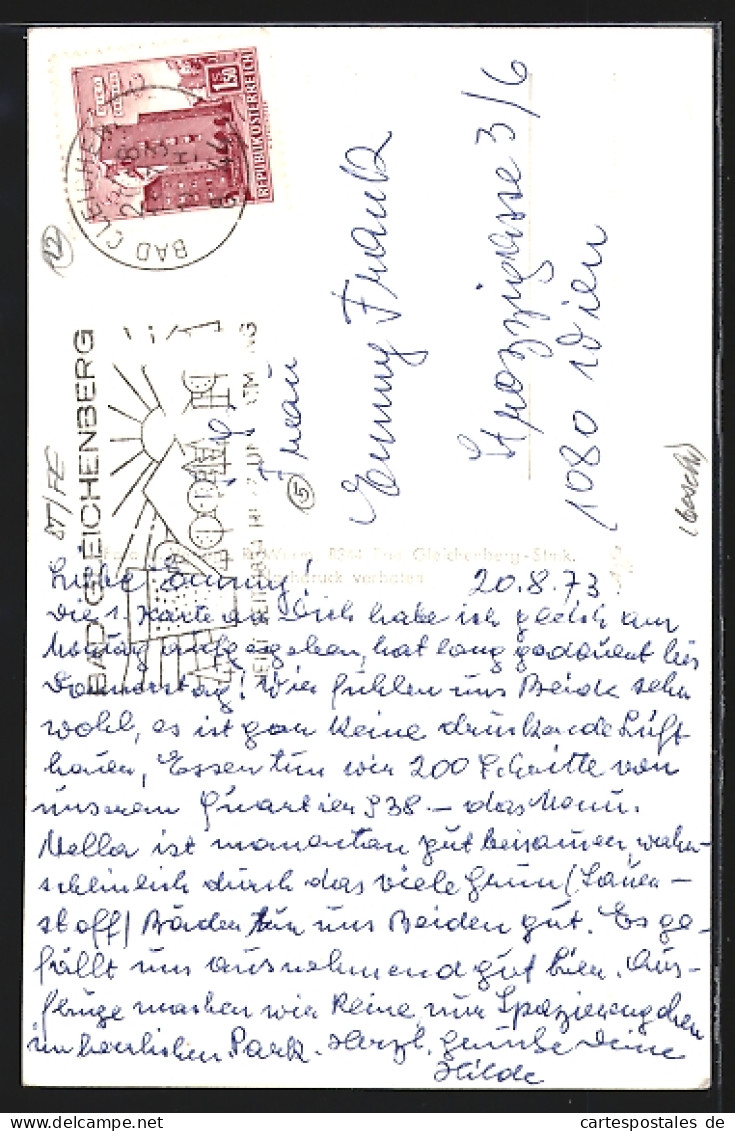 REPUBLIK ÖSTERREICH
1.50
BAD GLEICHENBERG
BAD GLEICHENBERG
Frau
Emmy Frank
Strozzigasse 3/6
1080 Wien
12
5
87/FE
8344 Bad Gleichenberg-Stmk.
Nachdruck verboten
Liebe Emmy! 20.8.73
Die 1. Karte an Dich habe ich gleich am
Montag aufgegeben, hat lang gedauert bis
Donnerstag! Wir fühlen uns Beide sehr
wohl, es ist gar keine drückende Luft
hier, Essen tun wir 200 Schritte von
unserem Quartier S 38.– das Menu.
Mella ist momentan gut beisamen, wahr-
scheinlich durch das viele Grün (Sauer-
stoff) Bäder tun uns Beiden gut. Es ge-
fällt uns ausnehmend gut hier. Aus-
flüge machen wir keine, nur Spaziereng
im herrlichen Park. Herzl. Grüße Deine
Hilde
cartespostales de